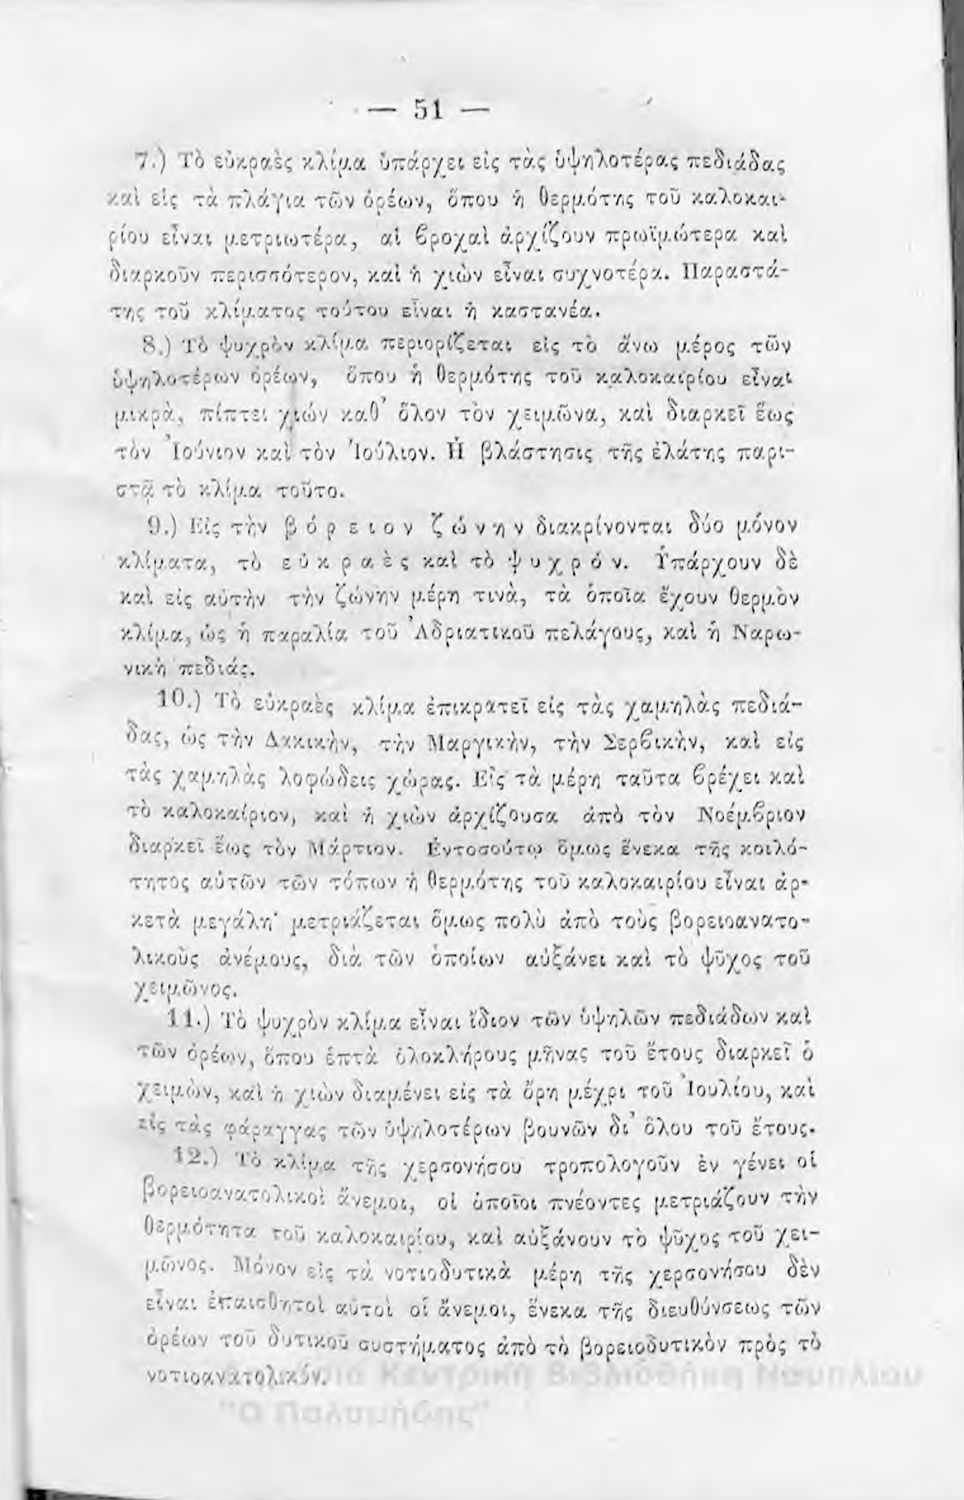 — 51 —
7.) Τὸ εὐκραὲς κλίμα ὑπάρχει εἰς τὰς ὑψηλοτέρας πεδιάδας
καὶ εἰς τὰ πλάγια τῶν ὀρέων, ὅπου ἡ θερμότης τοῦ καλοκαι-
ρίου εἶναι μετριωτέρα, αἱ ϐροχαὶ ἀρχίζουν πρωϊμώτερα καὶ
διαρκοῦν περισσότερον, καὶ ἡ χιὼν εἶναι συχνοτέρα. Παραστά-
της τοῦ κλίματος τούτου εἶναι ἡ καστανέα.
8.) Τὸ ψυχρὸν κλίμα περιορίζεται εἰς τὸ ἄνω μέρος τῶν
ὑψηλοτέρων ὀρέων, ὅπου ἡ θερμότης τοῦ καλοκαιρίου εἶναι
μικρὰ, πίπτει χιὼν καθ᾽ ὅλον τὸν χειμῶνα, καὶ διαρκεῖ ἕως
τὸν Ἰούνιον καὶ τὸν Ἰούλιον. Ἡ βλάστησις τῆς ἐλάτης παρι-
στᾷ τὸ κλίμα τοῦτο.
9.) Εἰς τὴν βόρειον ζώνην διακρίνονται δύο μόνον
κλίματα, τὸ εὐκραὲς καὶ τὸ ψυχρόν. Ὑπάρχουν δὲ
καὶ εἰς αὐτὴν τὴν ζώνην μέρη τινὰ, τὰ ὁποῖα ἔχουν θερμὸν
κλίμα, ὡς ἡ παραλία τοῦ Ἀδριατικοῦ πελάγους, καὶ ἡ Ναρω-
νικὴ πεδιάς.
10.) Τὸ εὐκραὲς κλίμα ἐπικρατεῖ εἰς τὰς χαμηλὰς πεδιά-
δας, ὡς τὴν Δακικὴν, τὴν Μαργικὴν, τὴν Σερϐικὴν, καὶ εἰς
τὰς χαμηλὰς λοφώδεις χώρας. Εἰς τὰ μέρη ταῦτα ϐρέχει καὶ
τὸ καλοκαίριον, καὶ ἡ χιὼν ἀρχίζουσα ἀπὸ τὸν Νοέμϐριον
διαρκεῖ ἕως τὸν Μάρτιον. Ἐντοσούτῳ ὅμως ἕνεκα τῆς κοιλό-
τητος αὐτῶν τῶν τόπων ἡ θερμότης τοῦ καλοκαιρίου εἶναι ἀρ-
κετὰ μεγάλη· μετριάζεται ὅμως πολὺ ἀπὸ τοὺς βορειοανατο-
λικοὺς ἀνέμους, διὰ τῶν ὁποίων αὐξάνει καὶ τὸ ψῦχος τοῦ
χειμῶνος.
11.) Τὸ ψυχρὸν κλίμα εἶναι ἴδιον τῶν ὑψηλῶν πεδιάδων καὶ
τῶν ὀρέων, ὅπου ἑπτὰ ὁλοκλήρους μῆνας τοῦ ἔτους διαρκεῖ ὁ
χειμὼν, καὶ ἡ χιὼν διαμένει εἰς τὰ ὄρη μέχρι τοῦ Ἰουλίου, καὶ
εἰς τὰς φάραγγας τῶν ὑψηλοτέρων βουνῶν δι᾽ ὅλου τοῦ ἔτους.
12.) Τὸ κλίμα τῆς χερσονήσου τροπολογοῦν ἐν γένει οἱ
βορειοανατολικοὶ ἄνεμοι, οἱ ὁποῖοι πνέοντες μετριάζουν τὴν
θερμότητα τοῦ καλοκαιρίου, καὶ αὐξάνουν τὸ ψῦχος τοῦ χει-
μῶνος. Μόνον εἰς τὰ νοτιοδυτικὰ μέρη τῆς χερσονήσου δὲν
εἶναι ἐπαισθητοὶ αὐτοὶ οἱ ἄνεμοι, ἕνεκα τῆς διευθύνσεως τῶν
ὀρέων τοῦ δυτικοῦ συστήματος ἀπὸ τὸ βορειοδυτικὸν πρὸς τὸ
νοτιοανατολικόν.
Κεντρική Βιβλιοθήκη Ναυπλίου
"Ο Παλαμήδης"